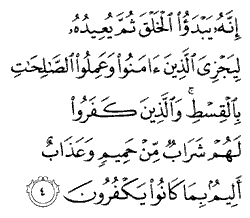 إِنَّهُۥ يَبْدَؤُا۟ ٱلْخَلْقَ ثُمَّ يُعِيدُهُۥ
لِيَجْزِىَ ٱلَّذِينَ ءَامَنُوا۟ وَعَمِلُوا۟ ٱلصَّـٰلِحَـٰتِ
بِٱلْقِسْطِ ۚ وَٱلَّذِينَ كَفَرُوا۟
لَهُمْ شَرَابٌ مِّنْ حَمِيمٍ وَعَذَابٌ
أَلِيمٌۢ بِمَا كَانُوا۟ يَكْفُرُونَ ٤